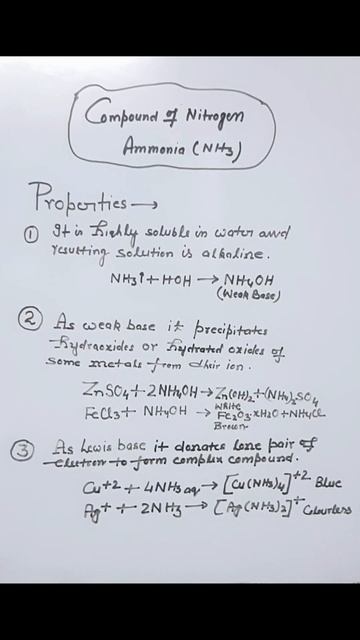 Compound of Nitrogen
Ammonia (NH3)
Properties →
① It is highly soluble in water and
resulting solution is alkaline.
NH3↑ + HOH → NH4OH
(Weak Base)
② As weak base it precipitates
hydraoxides or hydrated oxides of
some metals from their ion.
ZnSO4 + 2NH4OH → Zn(OH)2 + (NH4)2SO4
White
FeCl3 + NH4OH → Fe2O3.xH2O + NH4Cl
Brown
③ As Lewis base it donates lone pair of
electron to form complex compound.
Cu+2 + 4NH3 aq → [Cu(NH3)4]+2 Blue
Ag+ + 2NH3 → [Ag(NH3)2]+ Colourless